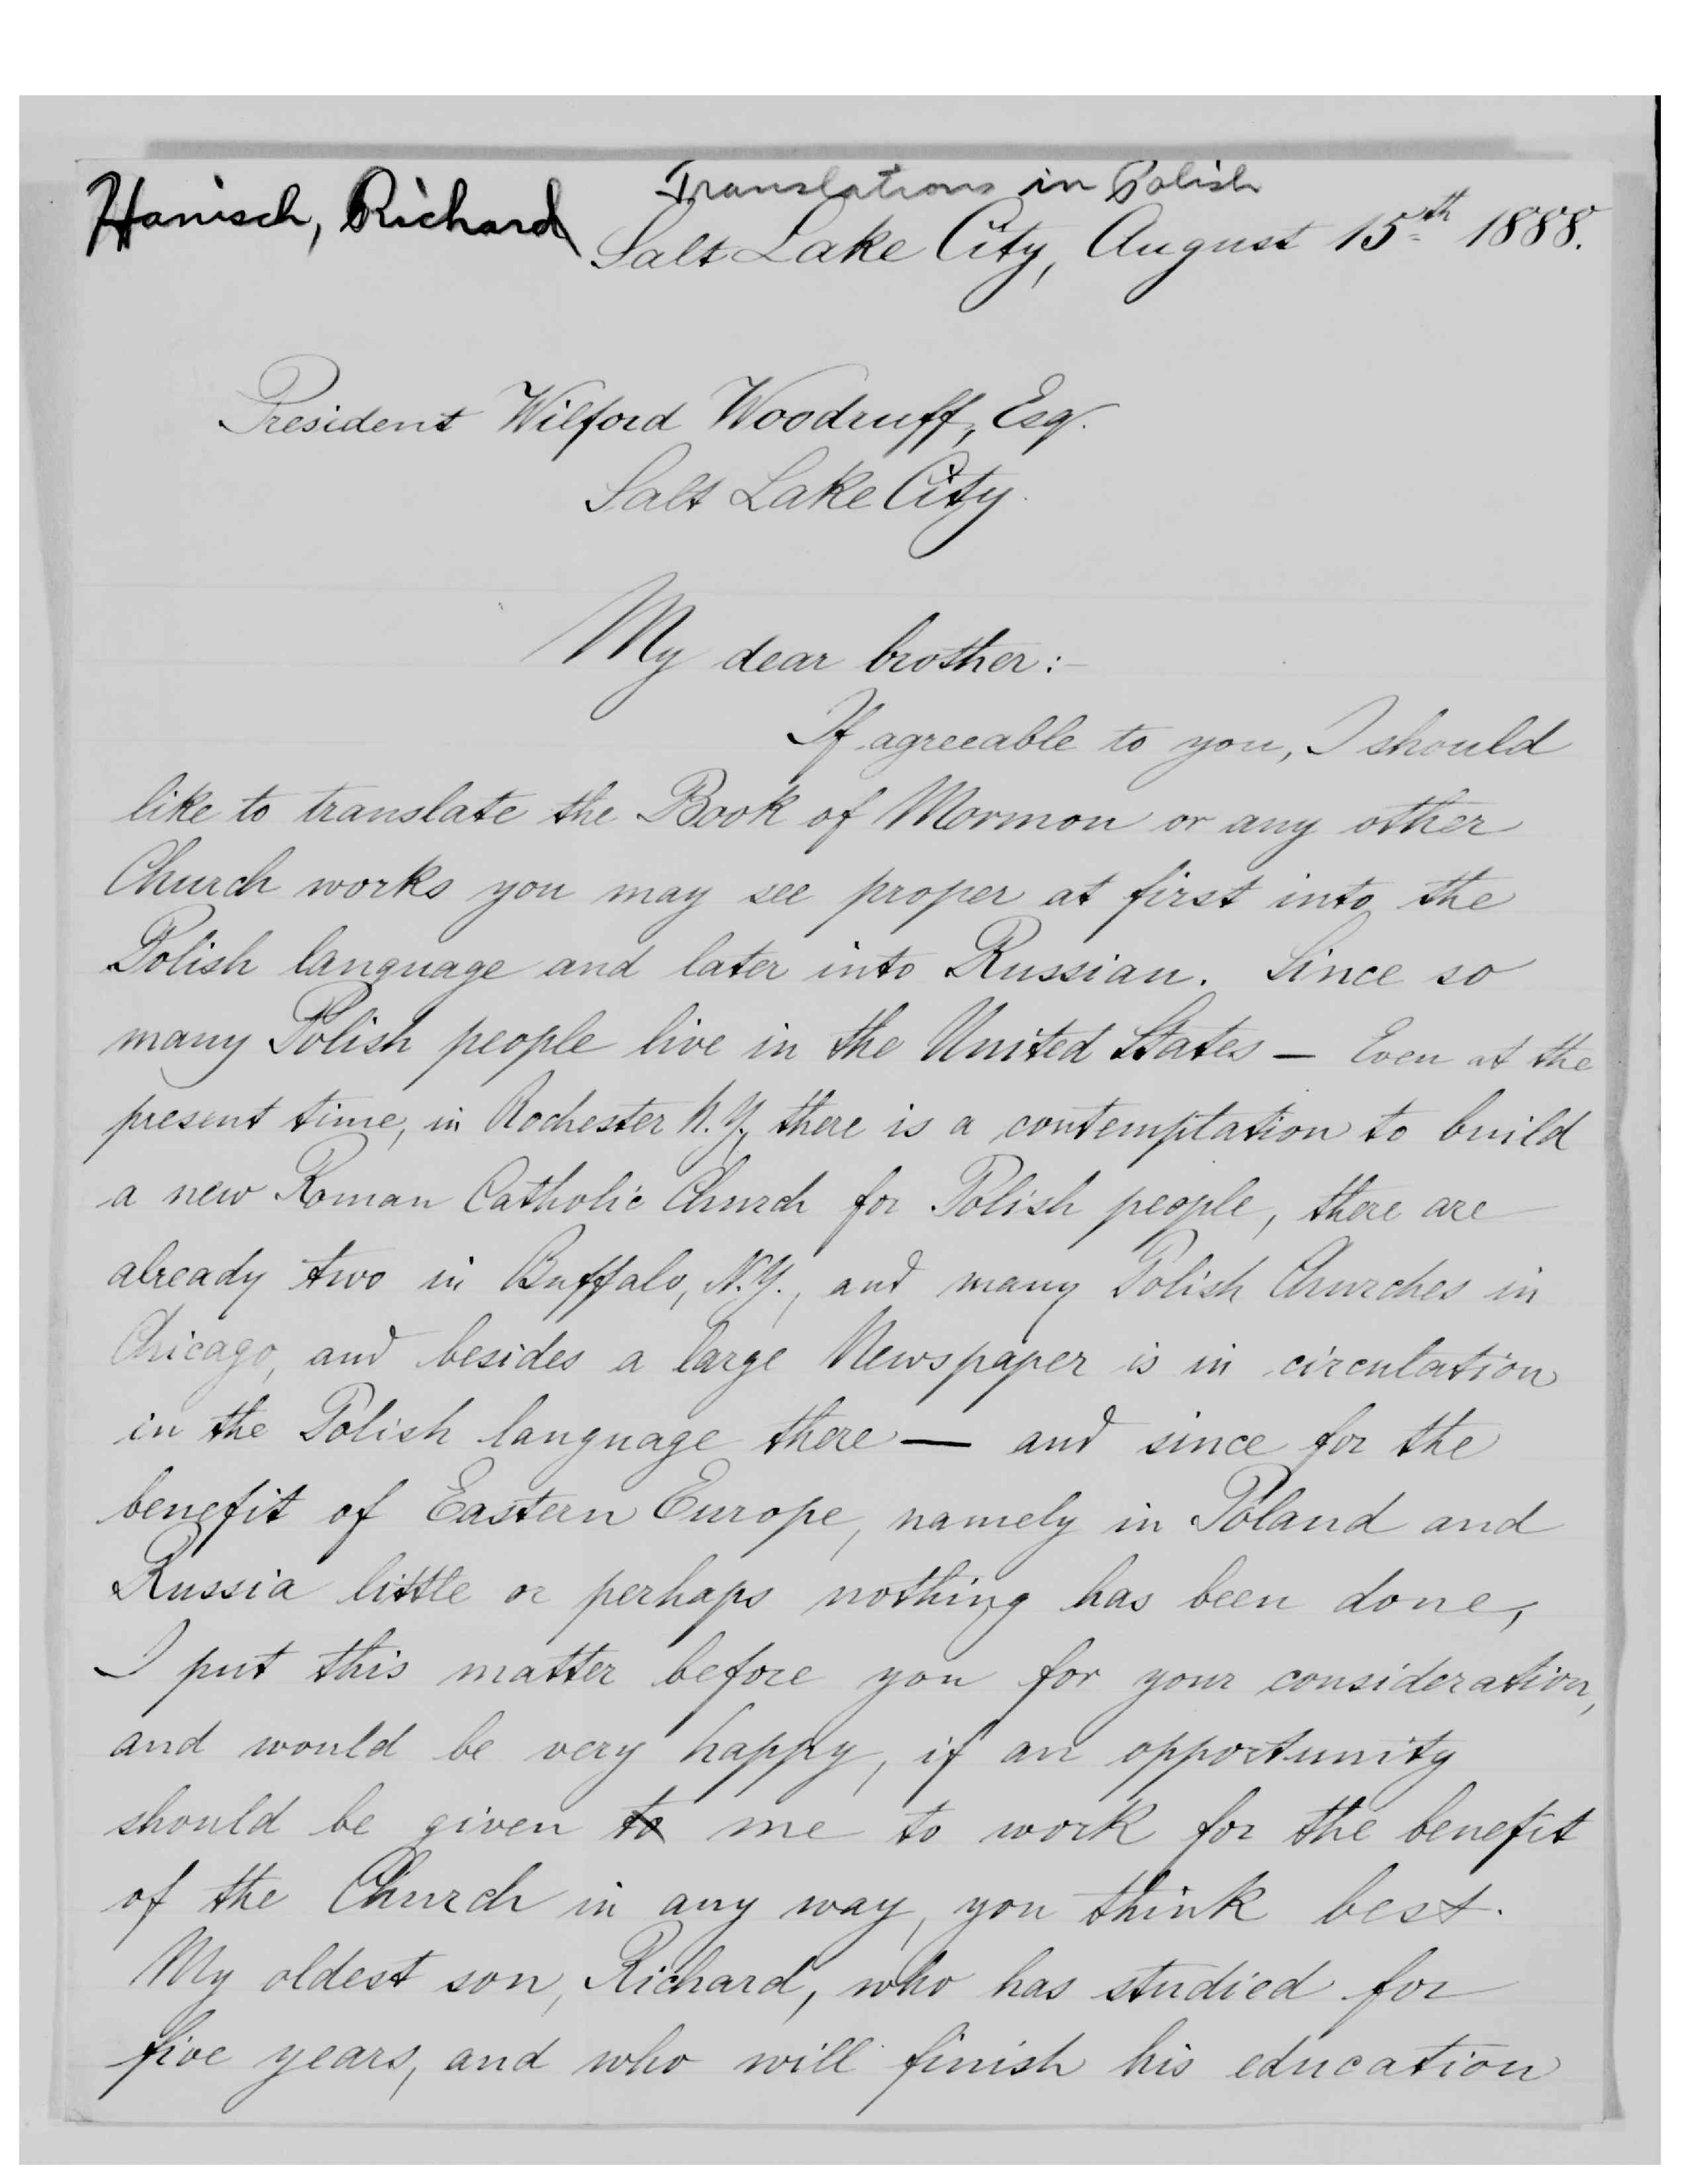 Hanisch, Richard
Translations in Polish
Salt Lake City, August 15th 1888.
President Wilford Woodruff, Esq.
Salt Lake City.
My dear brother:
If agreeable to you, I should
like to translate the Book of Mormon or any other
Church works you may see proper at first into the
Polish language and later into Russian. Since so
many Polish people live in the United States — Even at the
present time, in Rochester N.Y., there is a contemptation to build
a new Roman Catholic Church for Polish people, there are
already two in Buffalo, N.Y., and many Polish Churches in
Chicago, and besides a large Newspaper is in circulation
in the Polish language there — and since for the
benefit of Eastern Europe, namely in Poland and
Russia little or perhaps nothing has been done,
I put this matter before you for your consideration,
and would be very happy, if an opportunity
should be given to me to work for the benefit
of the Church in any way, you think best.
My oldest son, Richard, who has studied for
five years, and who will finish his education